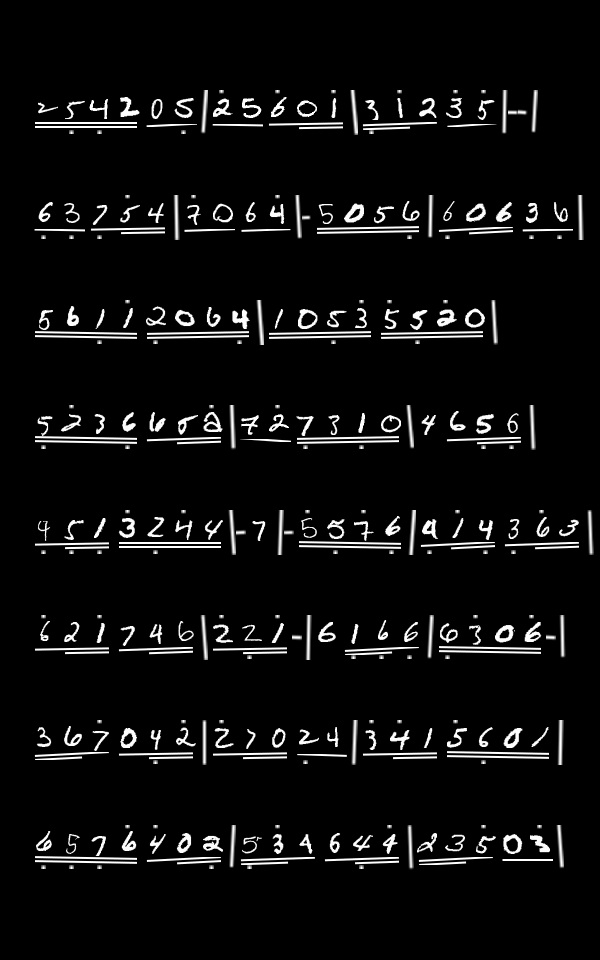 254205|25601|31235|--|
63754|7064|-5056|60636|
56112064|10535520|
5236658|727310|4656|
4513244|-7|-5576|414363|
621746|221-|6166|6306-|
367042|27024|3415601|
6576402|534644|23503|